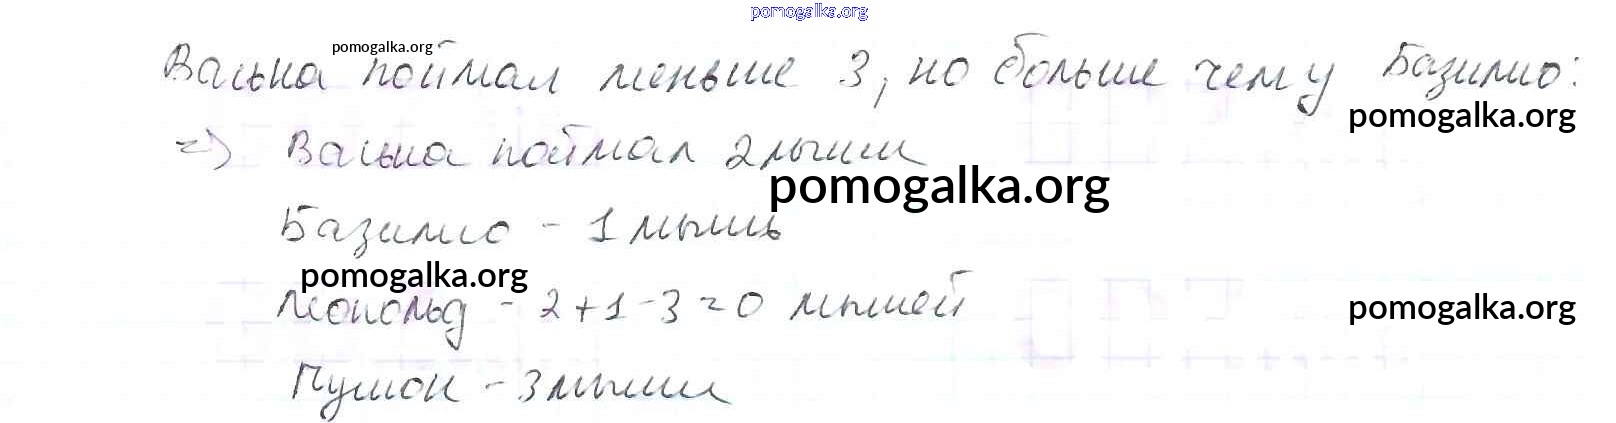 pomogalka.org
Васька поймал меньше 3, но больше чем у Базилио:
pomogalka.org
pomogalka.org
=> Васька поймал 2 мыши
pomogalka.org
Базилио - 1 мышь
pomogalka.org
Леопольд - 2+1-3=0 мышей
pomogalka.org
Пушок - 3 мыши